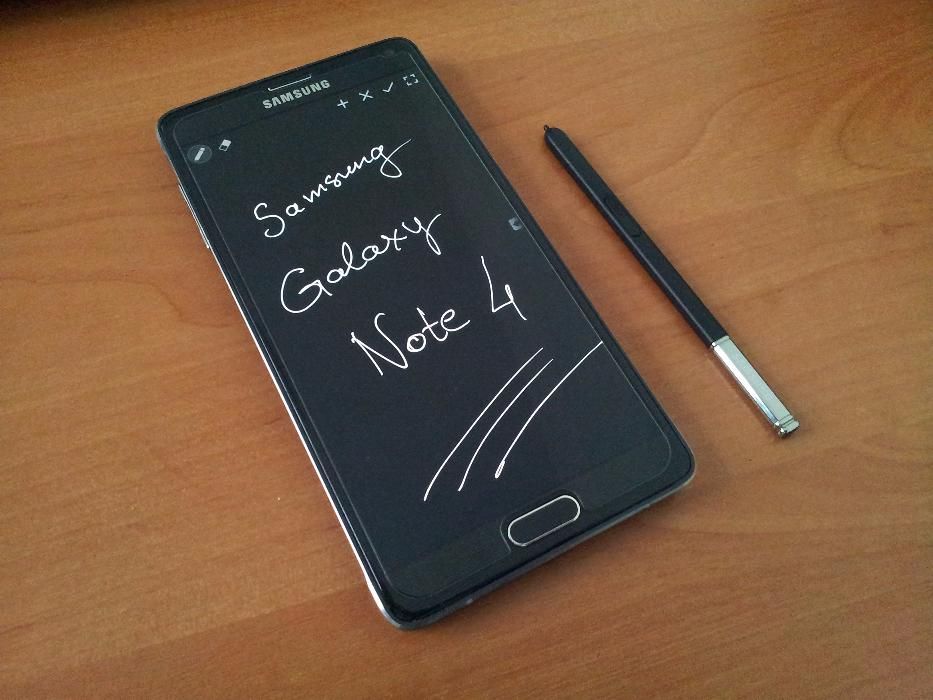 SAMSUNG
Samsung
Galaxy
Note 4